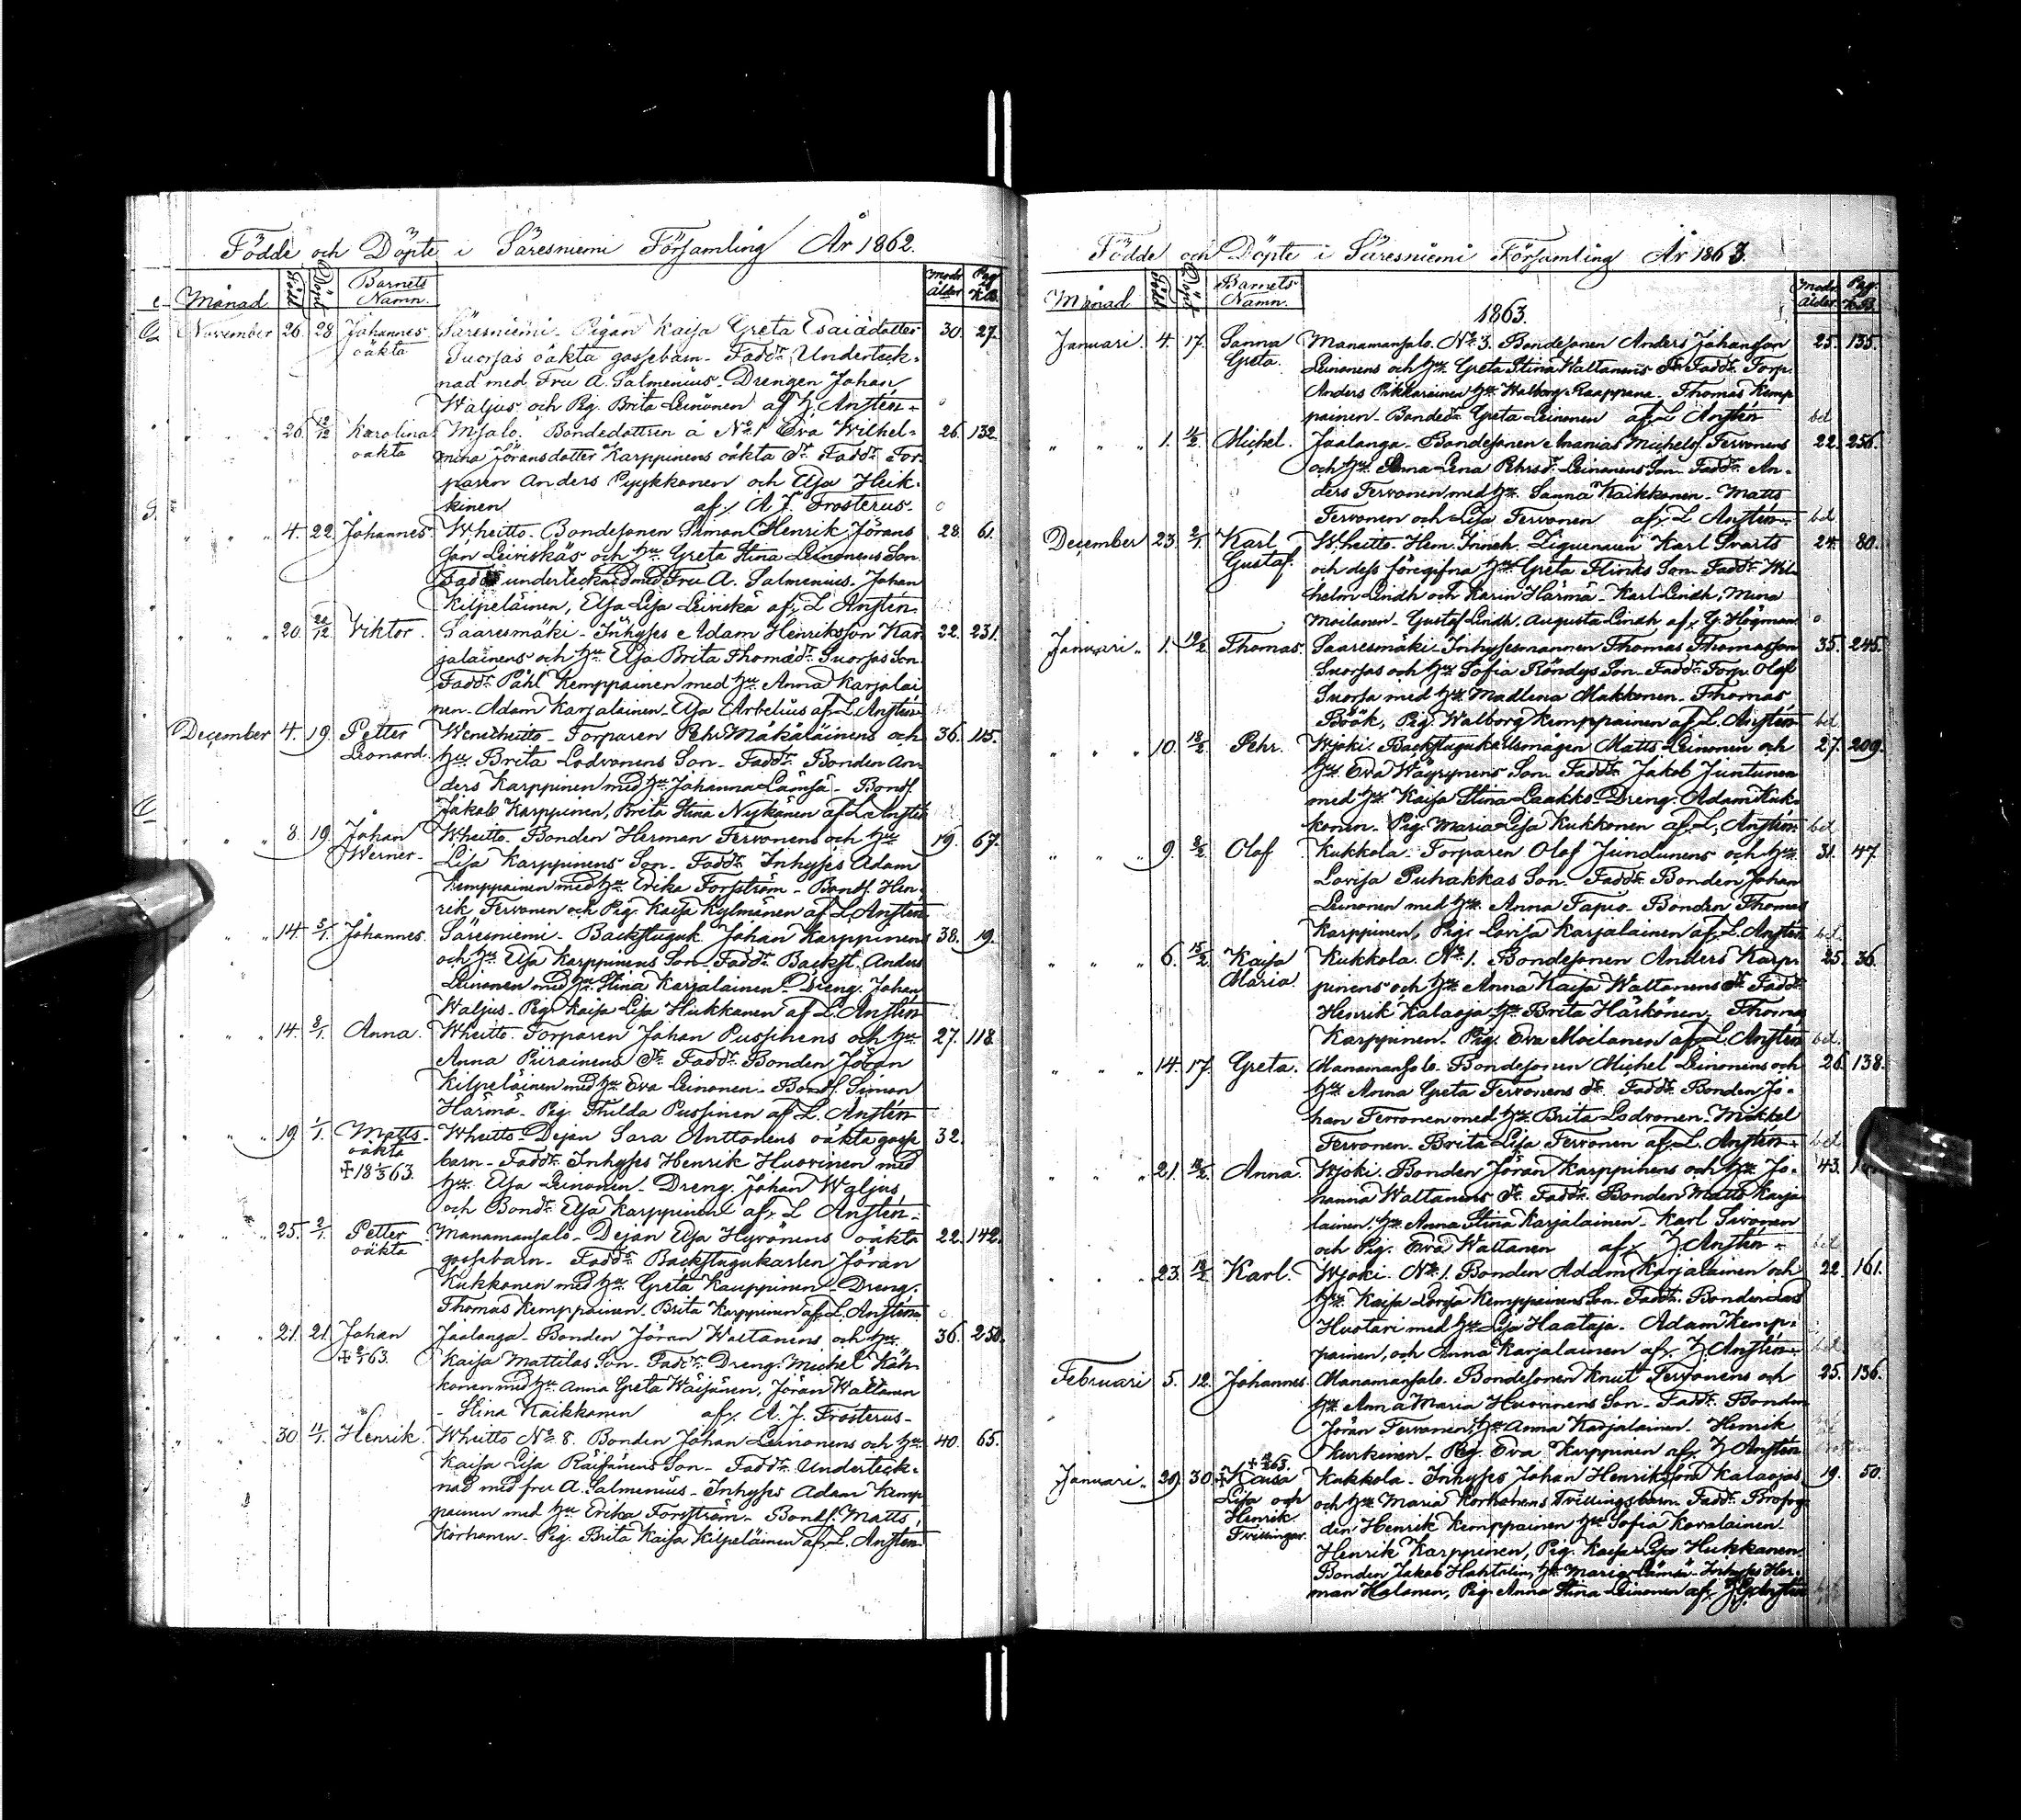 Födde och Döpte i Säresniemi Församling År 1862.
Månad Född Döpt Barnets Namn. Modr. Ålder Pag. K.B.
November 26. 28. Johannes Säresniemi. Pigan Kaisa Greta Esaiædotter 30. 27.
oäkta Suorsas oäkta gossebarn. Faddr. Underteck-
nad med Fru A. Salmenius. Drengen Johan
Waljus och Pig. Brita Leinonen af L. Anstén.
" " " 26. 12/12 Karolina Msalo. Bondedottren å No 1 Eva Wilhel- 26. 132.
oäkta mina Jöransdotter Karppinens oäkta dr. Faddr. Tor-
paren Anders Pyykkonen och Elsa Heik-
kinen af A. J. Frosterus.
" " " 4. 22. Johannes. Wheitto. Bondesonen Simon Henrik Jörans 28. 61.
son Leiviskäs och Hu Greta Stina Leinonens Son.
Faddr. undertecknad med Fru A. Salmenius. Johan
Kilpeläinen, Elsa Lisa Leiviskä af L. Anstén.
" " " 20. 20/12 Viktor. Saaresmäki. Inhyses Adam Henriksson Kar 22. 231.
jalainens och Hu Elsa Brita Thomædr. Suorsas Son.
Faddr. Påhl Kemppainen med Hu Anna Karjalai
nen. Adam Karjalainen. Elsa Arbelius af L. Anstén.
December 4. 19. Petter Wenetheitto. Torparen Pehr Mäkäläinens och 36. 115.
Leonard. Hu Brita Lodvonens Son. Faddr. Bonden An-
ders Karppinen med Hu Johanna Lämsä. Bonds.
Jakob Karppinen, Brita Stina Nykänen af L. Anstén
" " " 8. 19. Johan Wheitto. Bonden Herman Tervonens och Hu 19. 67.
Werner. Lisa Karppinens Son. Faddr. Inhyses Adam
Kemppainen med Hu Erika Forsström. Bonds. Hen-
rik Tervonen och Pig. Kaisa Kylmänen af L. Anstén
" " " 14. 3/1. Johannes. Säresniemi. Backstuguk. Johan Karppinens 38. 19.
och Hu Elsa Karppinens Son. Faddr. Backst. Anders
Leinonen med Hu Stina Karjalainen. Dreng. Johan
Waljus. Pig. Kaisa Lisa Hukkanen af L. Anstén
" " " 14. 3/1. Anna. Wheitto. Torparen Johan Pussinens och Hu 27. 118.
Anna Piirainens dr. Faddr. Bonden Jöran
Kilpeläinen med Hu Eva Leinonen. Bonds. Simon
Härmä. Pig. Thilda Pussinen af L. Anstén
" " " 19. 1/1. Matts. Wheitto. Dejan Sara Anttonens oäkta gosse 32.
oäkta barn. Faddr. Inhyses Henrik Huovinen med
+ 18 63. Hu Elsa Leinonen. Dreng. Johan Waljus
och Bondr. Elsa Karppinen af L. Anstén.
" " " 25. 2/1. Petter Manamansalo. Dejan Elsa Hyvönens oäkta 22. 142.
oäkta gossebarn. Faddr. Backstugukarlen Jöran
Kukkonen med Hu Greta Kauppinen. Dreng.
Thomas Kemppainen. Brita Karppinen af L. Anstén.
" " " 21. 21. Johan Jaalanga. Bonden Jöran Waltanens och Hu 36. 250.
+ 63. Kaisa Mattilas Son. Faddr. Dreng. Michel Käh-
konen med Hu Anna Greta Wäisänen, Jöran Waltanen
Stina Kaikkonen af A. J. Frosterus.
" " " 30. 11/1. Henrik. Wheitto No 8. Bonden Johan Leinonens och Hu 40. 65.
Kaisa Lisa Räisänens Son. Faddr. Underteck-
nad med fru A. Salmenius. Inhyses Adam Kemp
painen med Hu Erika Forsström. Bonds. Matts
Korhonen. Pig. Brita Kaisa Kilpeläinen af L. Anstén.
Födde och Döpte i Säresniemi Församling År 1863.
Månad Född Döpt Barnets Namn. Modr. Ålder Pag. K.B.
1863.
Januari. 4. 17. Sanna Manamansalo. No 3. Bondesonen Anders Johansson 25. 135.
Greta. Leinonens och Hu Greta Stina Waltanens dr. Faddr. Torp.
Anders Pikkarainen Hu Walborg Raappana. Thomas Kemp
painen. Bondedr. Greta Leinonen af L. Anstén bet.
" " " 1. 4/2. Michel. Jaalanga. Bondesonen Ananias Michelss. Tervonens 22. 256.
och Hu Anna Lena Pehrsdr. Leinonens Son. Faddr. An-
ders Tervonen med Hu Sanna Kaikkonen. Matts
Tervonen och Lisa Tervonen af L. Anstén. bet.
December 23. 2/1. Karl Wheitto. Hem. Inneh. Ziguenaren Karl Svarts 24. 80.
Gustaf. och dess föregifna Hu Greta Flinks Son. Faddr. Wil-
helm Lindh och Karin Härmä. Karl Lindh, Mina
Moilanen. Gustaf Lindh, Augusta Lindh af G. Högman.
Januari " 1. 19/2. Thomas. Saaresmäki. Inhysesmannen Thomas Thomasson 35. 245.
Suorsas och Hu Sofia Röndys Son. Faddr. Torp. Olof
Suorsa med Hu Madlena Makkonen. Thomas
Böök, Pig. Walborg Kemppainen af L. Anstén. bet.
" " " 10. 18/2. Pehr. Wjoki. Backstugukallsmågen Matts Leinonen och 27. 209.
Hu Eva Wäyrynens Son. Faddr. Jakob Juntunen
med Hu Kaisa Stina Laakko. Dreng. Adam Kuk-
konen. Pig. Maria Lisa Kukkonen af L. Anstén. bet.
" " " 9. 8/2. Olof Kukkola. Torparen Olof Jundunens och Hu 31. 47.
Lovisa Puhakkas Son. Faddr. Bonden Johan
Leinonen med Hu Anna Tapio. Bonden Thomas
Karppinen, Pig. Lovisa Karjalainen af L. Anstén bet.
" " " 6. 15/2. Kaisa Kukkola. No 1. Bondesonen Anders Karp- 25. 36.
Maria. pinens och Hu Anna Kaisa Waltanens dr. Faddr.
Henrik Kalaoja Hu Brita Härkönen. Thoma
Karppinen. Pig. Eva Moilanen af L. Anstén bet.
" " " 14. 17. Greta. Manamansalo. Bondesonen Michel Leinonens och 26. 138.
Hu Anna Greta Tervonens dr. Faddr. Bonden Jo-
han Tervonen med Hu Brita Lodvonen. Mikkel
Tervonen. Brita Lisa Tervonen af L. Anstén. bet.
" " " 21. 18/2. Anna. Wjoki. Bonden Jöran Karppinens och Hu Jo- 43.
hanna Waltanens dr. Faddr. Bonden Matts Karja
lainen, Hu Anna Stina Karjalainen. Karl Sivonen
och Pig. Eva Waltanen af L. Anstén. bet.
" " " 23. 18/2. Karl. Wjoki. No 1. Bonden Adam Karjalainen och 22. 161.
Hu Kaisa Lovisa Kemppainens Son. Faddr. Bonden Lars
Huotari med Hu Lisa Haataja. Adam Kemp-
painen, och Anna Karjalainen af L. Anstén. bet.
Februari 5. 12. Johannes. Manamansalo. Bondesonen Knut Tervonens och 25. 136.
Hu Anna Maria Huovinens Son. Faddr. Bonden
Jöran Tervonen, Hu Anna Karjalainen. Henrik
Kurkinen. Pig. Eva Karppinen af L. Anstén
Januari " 29. 30. + 63. Kaisa Kukkola. Inhyses Johan Henriksson Kalaojas 19. 50.
Lisa och och Hu Maria Korhonens Tvillingsbarn. Faddr. Brofog-
Henrik den Henrik Kemppainen Hu Sofia Kovalainen.
Tvillingar. Henrik Karppinen, Pig. Kaisa Lisa Hukkanen.
Bonden Jakob Hahtolin, Hu Maria Lämsä. Inhyses Her-
man Halonen, Pig. Anna Stina Leinonen af Anstén